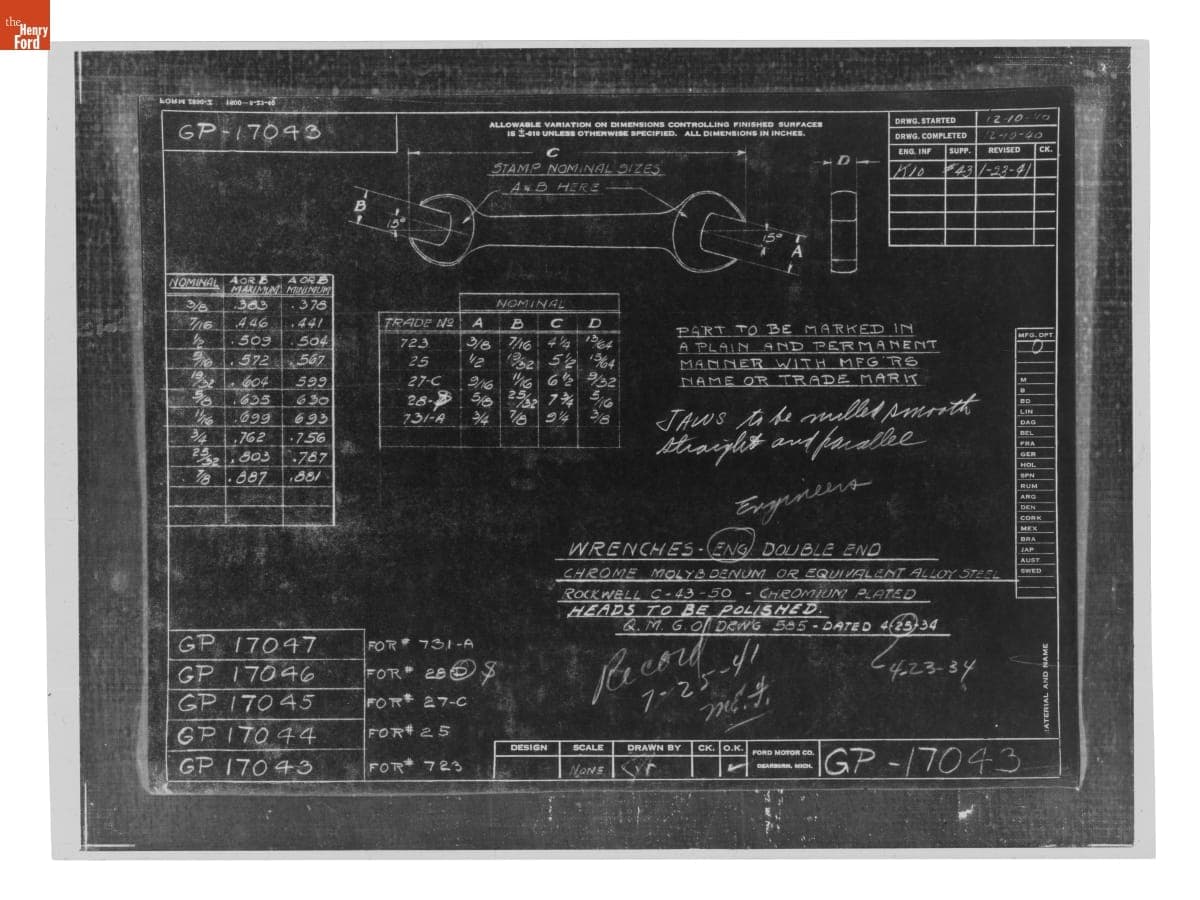 the
Henry
Ford
GP-17043
ALLOWABLE VARIATION ON DIMENSIONS CONTROLLING FINISHED SURFACES
IS ±.010 UNLESS OTHERWISE SPECIFIED. ALL DIMENSIONS IN INCHES.
DRWG. STARTED 12-10-40
DRWG. COMPLETED 12-10-40
ENG. INF SUPP. REVISED CK.
K10 #43 1-23-41
C
STAMP NOMINAL SIZES
A & B HERE
D
B
15°
15°
A
NOMINAL A OR B MAXIMUM A OR B MINIMUM
3/8 .383 .378
7/16 .446 .441
1/2 .509 .504
9/16 .572 .567
19/32 .604 .599
5/8 .635 .630
11/16 .699 .693
3/4 .762 .756
25/32 .803 .787
7/8 .887 .881
NOMINAL
TRADE NO A B C D
723 3/8 7/16 4 1/4 13/64
25 1/2 19/32 5 1/2 15/64
27-C 9/16 11/16 6 1/2 9/32
28-S 5/8 25/32 7 3/4 5/16
731-A 3/4 7/8 9 1/4 3/8
PART TO BE MARKED IN
A PLAIN AND PERMANENT
MANNER WITH MFG'RS
NAME OR TRADE MARK
JAWS to be milled smooth
straight and parallel
Engineers
WRENCHES-ENG DOUBLE END
CHROME MOLYBDENUM OR EQUIVALENT ALLOY STEEL
ROCKWELL C-43-50 - CHROMIUM PLATED
HEADS TO BE POLISHED.
Q.M.G.O. DRWG 585-DATED 4-25-34
4-23-34
Record
7-25-41
MFG. DPT
O
M
B
BD
LIN
DAG
BEL
FRA
GER
HOL
SPN
RUM
ARG
DEN
CORK
MEX
BRA
JAP
AUST
SWED
MATERIAL AND NAME
GP 17047 FOR # 731-A
GP 17046 FOR # 28 S
GP 17045 FOR # 27-C
GP 17044 FOR # 25
GP 17043 FOR # 723
DESIGN SCALE DRAWN BY CK. O.K.
NONE
FORD MOTOR CO.
DEARBORN, MICH.
GP-17043